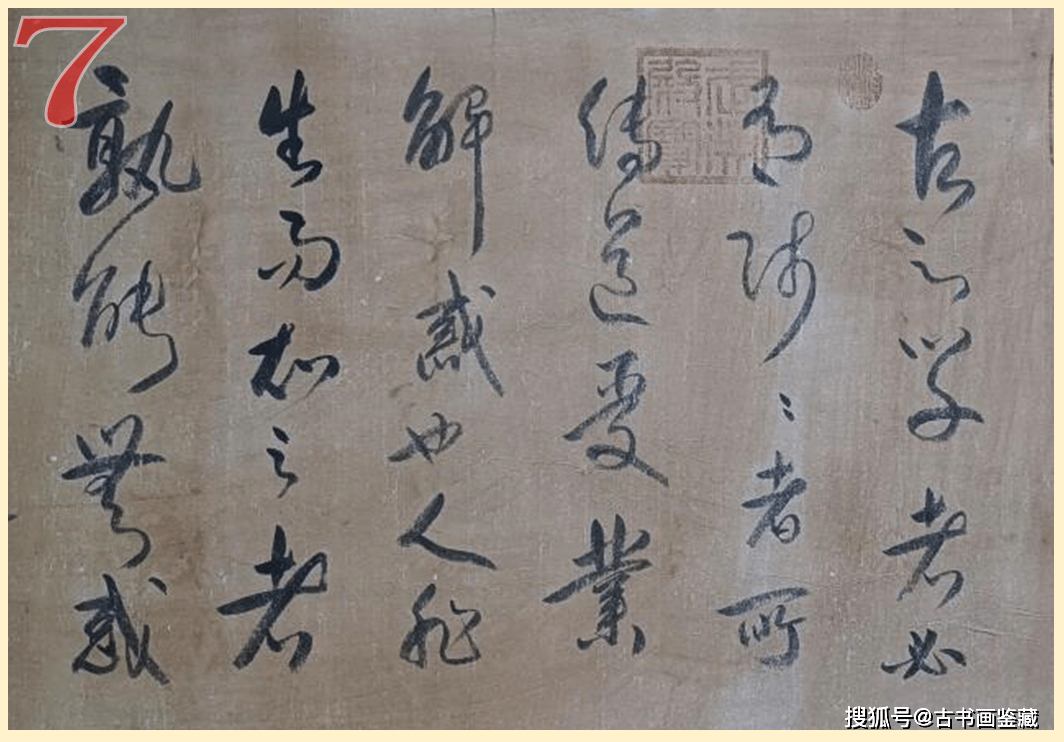 古之学者必
有师〻者所
传道受業
解惑也人非
生而知之者
孰能無惑
7
搜狐号@古书画鉴藏